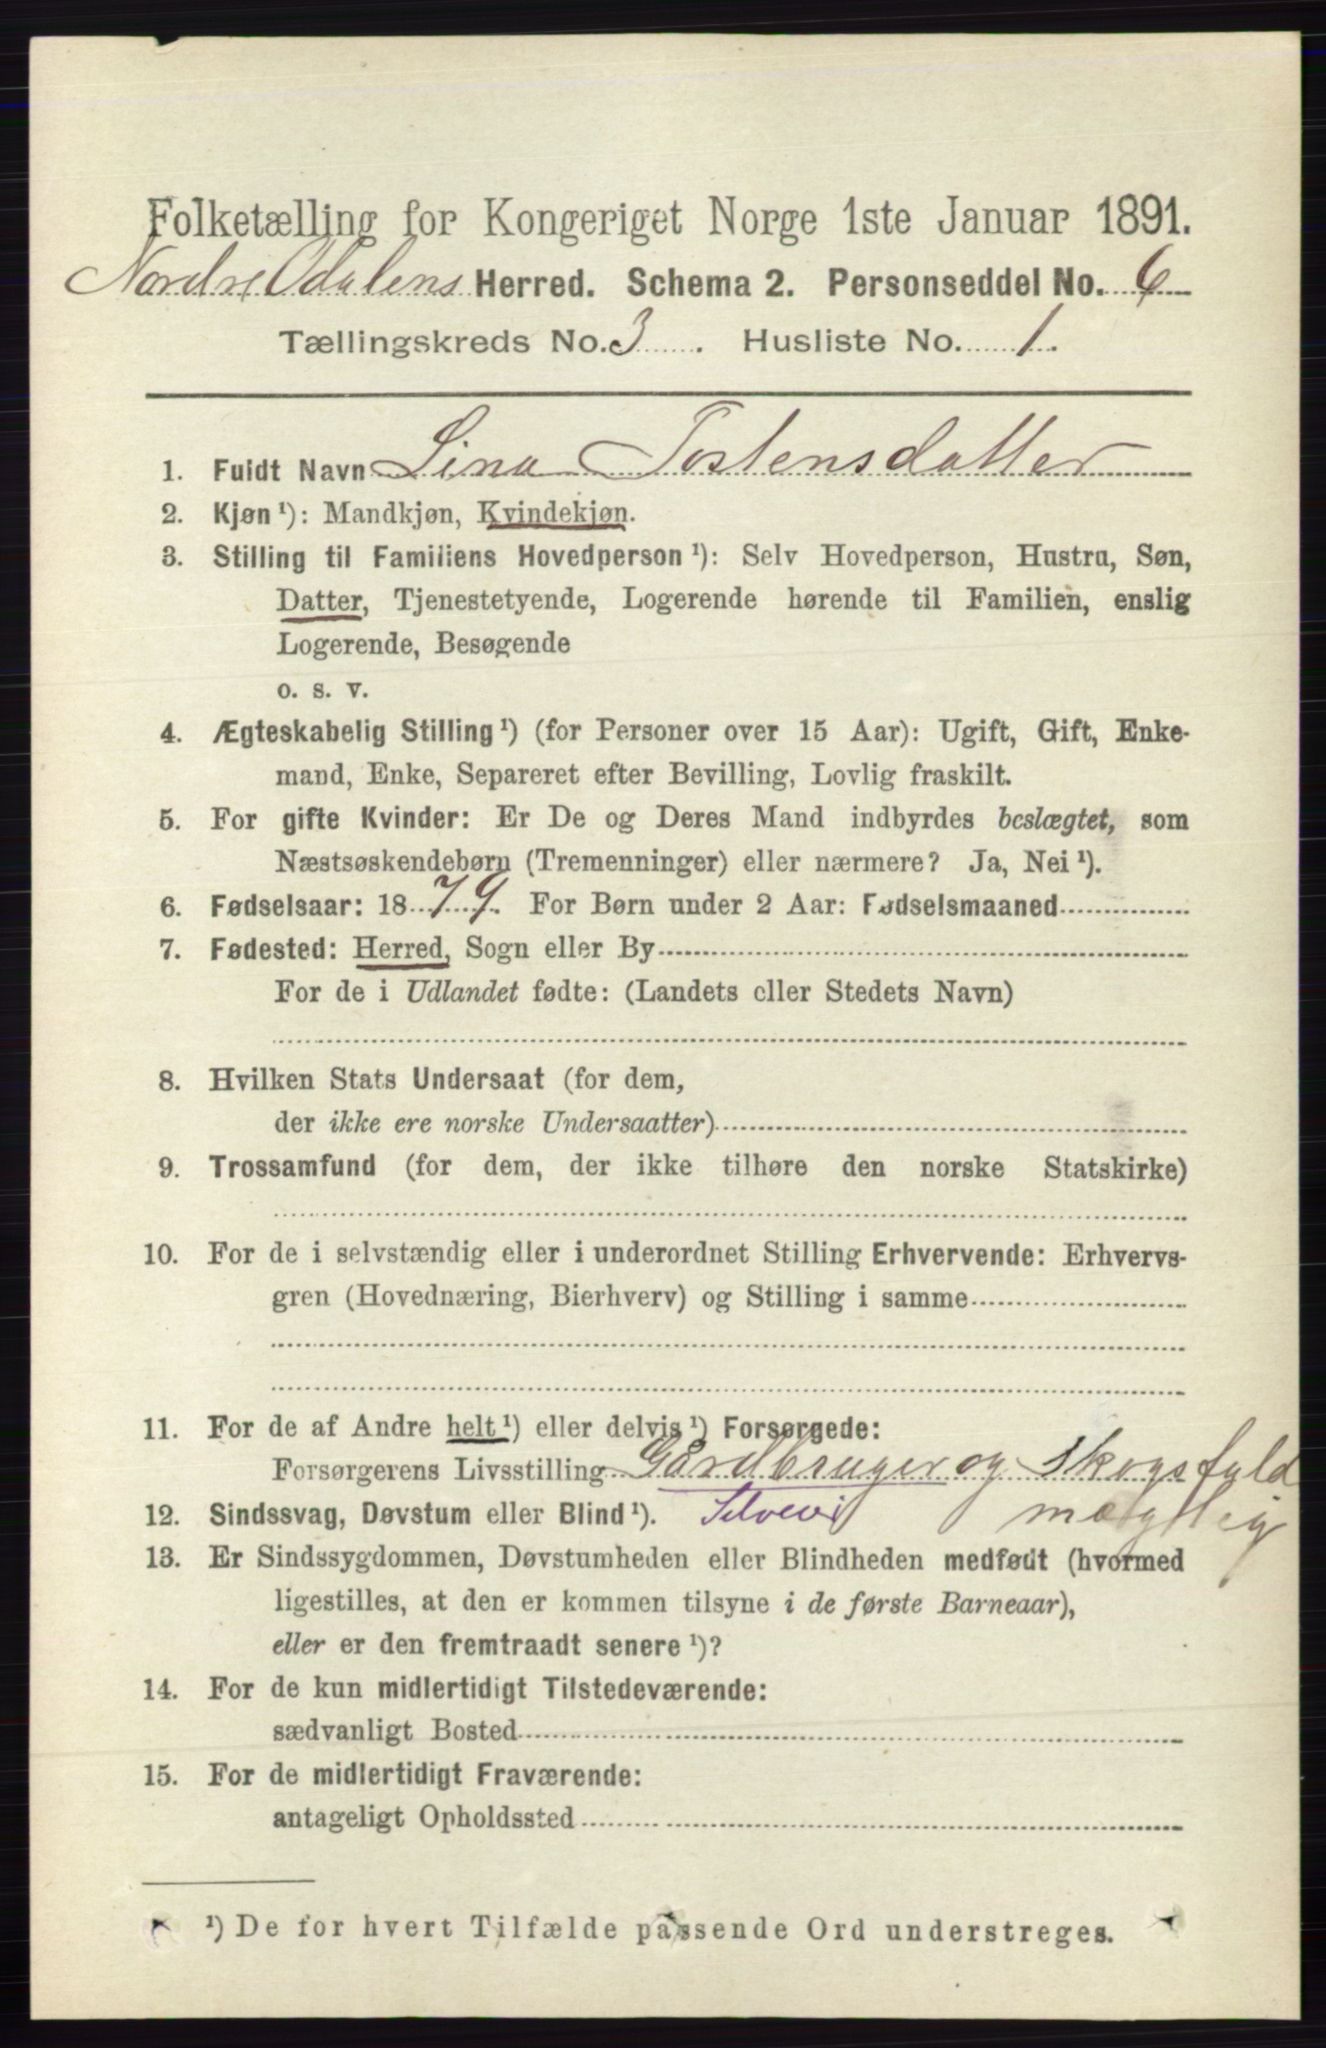 Folketælling for Kongeriget Norge 1ste Januar 1891.
Nordre Odalens Herred. Schema 2. Personseddel No. 6
Tællingskreds No. 3. Husliste No. 1.
1. Fuldt Navn Lina Tostensdatter
2. Kjøn ¹): Mandkjøn, Kvindekjøn.
3. Stilling til Familiens Hovedperson ¹): Selv Hovedperson, Hustru, Søn,
Datter, Tjenestetyende, Logerende hørende til Familien, enslig
Logerende, Besøgende
o. s. v.
4. Ægteskabelig Stilling ¹) (for Personer over 15 Aar): Ugift, Gift, Enke-
mand, Enke, Separeret efter Bevilling, Lovlig fraskilt.
5. For gifte Kvinder: Er De og Deres Mand indbyrdes beslægtet, som
Næstsøskendebørn (Tremenninger) eller nærmere? Ja, Nei ¹).
6. Fødselsaar: 1879. For Børn under 2 Aar: Fødselsmaaned
7. Fødested: Herred, Sogn eller By
For de i Udlandet fødte: (Landets eller Stedets Navn)
8. Hvilken Stats Undersaat (for dem,
der ikke ere norske Undersaatter)
9. Trossamfund (for dem, der ikke tilhøre den norske Statskirke)
10. For de i selvstændig eller i underordnet Stilling Erhvervende: Erhvervs-
gren (Hovednæring, Bierhverv) og Stilling i samme
11. For de af Andre helt ¹) eller delvis ¹) Forsørgede:
Forsørgerens Livsstilling Gårdbruger og skogsfuld
12. Sindssvag, Døvstum eller Blind ¹). mægtig
13. Er Sindssygdommen, Døvstumheden eller Blindheden medfødt (hvormed
ligestilles, at den er kommen tilsyne i de første Barneaar),
eller er den fremtraadt senere ¹)?
14. For de kun midlertidigt Tilstedeværende:
sædvanligt Bosted
15. For de midlertidigt Fraværende:
antageligt Opholdssted
¹) De for hvert Tilfælde passende Ord understreges.